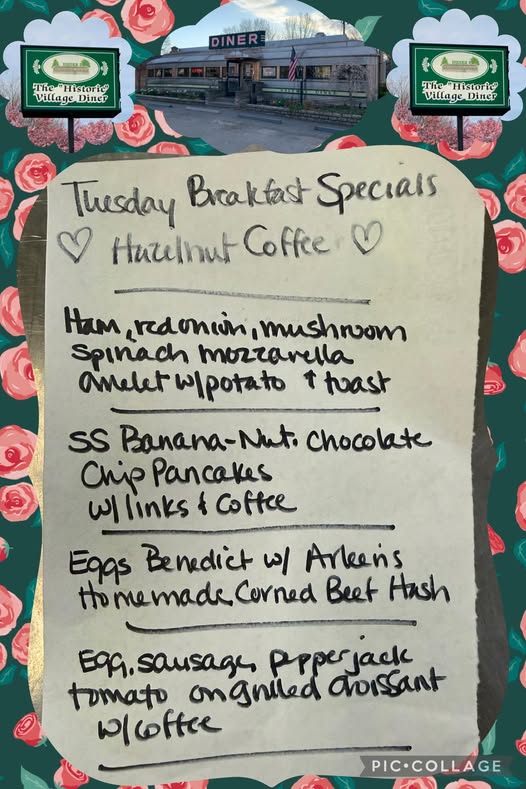 DINER
The "Historic"
Village Diner
The "Historic"
Village Diner
Tuesday Breakfast Specials
♡ Hazelnut Coffee ♡
Ham, red onion, mushroom
spinach mozzarella
omelet w/potato & toast
SS Banana-Nut. Chocolate
Chip Pancakes
w/links & Coffee
Eggs Benedict w/ Arleen's
Homemade Corned Beef Hash
Egg, sausage, pepperjack
tomato on grilled croissant
w/coffee
PIC•COLLAGE